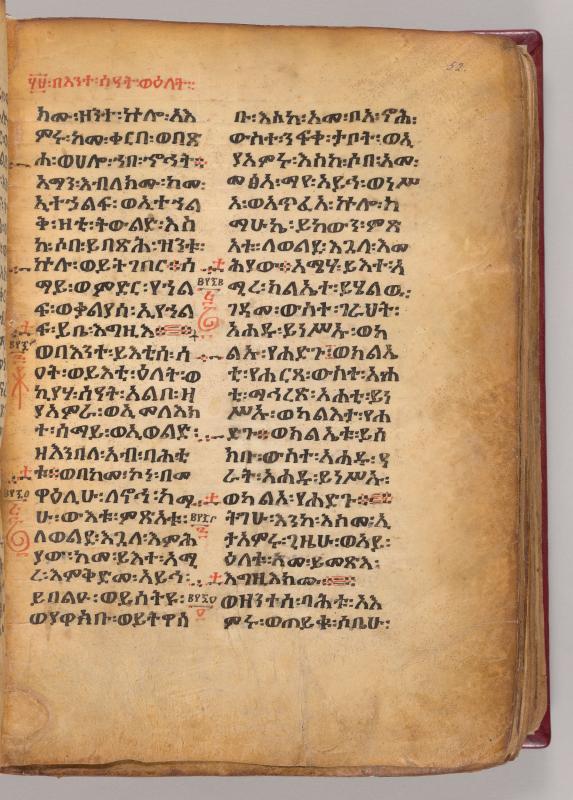 ፶፱፡በእንተ፡ሰዓት፡ወዕለት።
52
ክሙ፡ዘንተ፡ኵሎ፡አእ
ምሩ፡ከመ፡ቀርበ፡ወበጽ
ሐ፡ወሀሎ፡ኀበ፡ኆኅት።
አማን፡እብለክሙ፡ከመ፡
ኢተኀልፍ፡ወኢተኀል
ቅ፡ዛቲ፡ትውልድ፡እስ
ከ፡ሶበ፡ይበጽሕ፡ዝንቱ፡
ኵሉ፡ወይትገበር።ሰ
ማይ፡ወምድር፡የኀል
ፍ፡ወቃልየሰ፡ኢየኀል
ፍ፡ይቤ፡እግዚእ።
ወበእንተ፡ይእቲሰ፡ሰ
ዐት፡ወይእቲ፡ዕለት፡ወ
ኪያሃ፡ሰዓት፡አልቦ፡ዘ
ያአምራ፡ወኢመላእክ
ተ፡ሰማይ፡ወኢወልድ፡
ዘእንበለ፡አብ፡ባሕቲ
ቱ።ወበከመ፡ኮነ፡በመ
ዋዕሊሁ፡ለኖኅ፡ከማ
ሁ፡ውእቱ፡ምጽአቱ፡
ለወልደ፡እጓለ፡እምሕ
ያው፡ከመ፡ይእተ፡አሚ
ረ፡እምቅድመ፡አይኅ፡
ይበልዑ፡ወይሰትዩ፡
ወያዋስቡ፡ወይትዋሰ
ቡ፡እስከ፡አመ፡ቦአ፡ኖሕ፡
ውስተ፡ንፍቀ፡ታቦት፡ወኢ
ያእምሩ፡እስከ፡ሶበ፡አመ፡
መፅአ፡ማየ፡አይኅ፡ወነሥ
አ፡ወአጥፈአ፡ኵሎ፡ከ
ማሁኬ፡ይከውን፡ምጽ
አቱ፡ለወልደ፡እጓለ፡እመ
ሕያው።አሜሃ፡ይእተ፡አ
ሚረ፡ክልኤቱ፡ይሄልዉ፡
ገዳመ፡ውስተ፡ገራህት፡
አሐደ፡ይነሥኡ፡ወካ
ልኡ፡የሐድጉ፡ወክልኤ
ቲ፡የሐርጻ፡ውስተ፡አሐ
ቲ፡ማኅረጽ፡አሐቲ፡ይነ
ሥኡ፡ወካልእተ፡የሐ
ድጉ።ወክልኤቱ፡ይሰ
ክቡ፡ውስተ፡አሐዱ፡ዓ
ራት፡አሐዱ፡ይነሥኡ፡
ወካልአ፡የሐድጉ።
ትግሁ፡እንከ፡እስመ፡ኢ
ታአምሩ፡ጊዜሁ፡ወአይ፡
ዕለቱ፡አመ፡ይመጽእ፡
እግዚእክሙ።
ወዘንተሰ፡ባሕቱ፡አእ
ምሩ፡ወጠይቁ፡ሶቤሁ፡